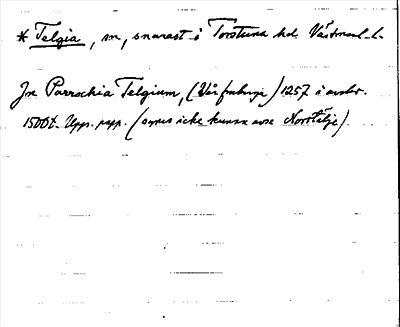 * Telgia, sn, snarast i Torstuna hd Västmanl. l.
Jn Parrochia Telgium, (Vår frukyrja) 1257 i avskr.
1500t. Upps. papp. (synes icke kunna avse Norrtälje).